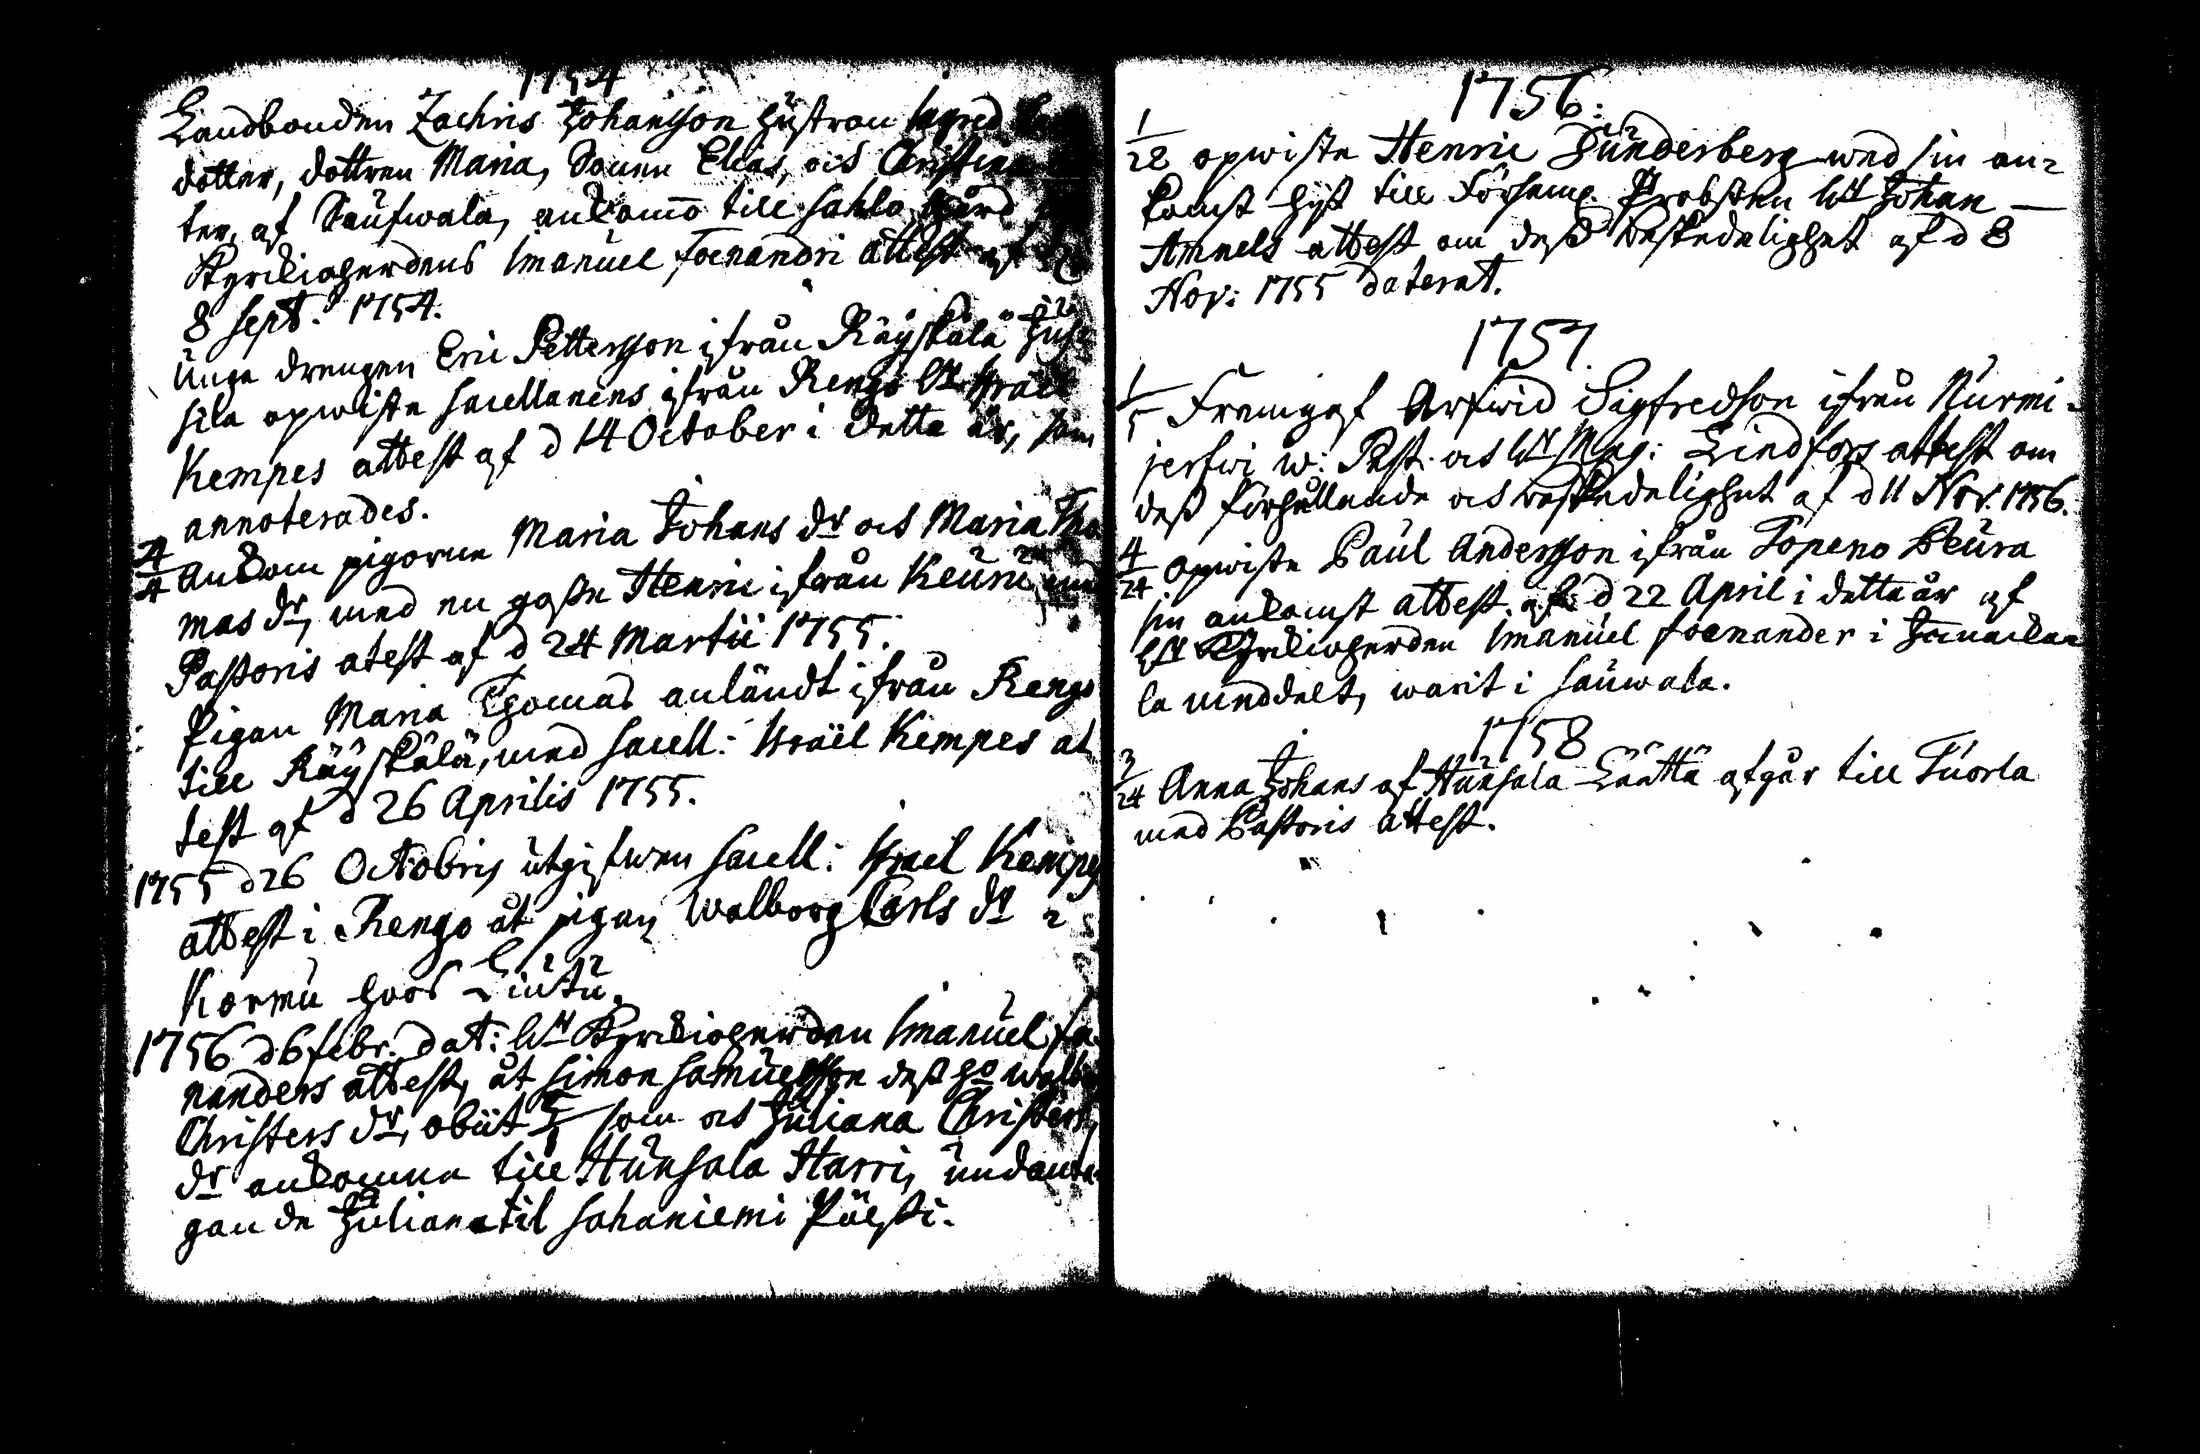 1754
Landbonden Zachris Johansson hustrun
dotter, dottren Maria, Sonen Elias, och Christina
ter, af Saufwala, ankomo till Sahla gård
Kyrckioherdens Imanuel Foenandri attest af
8 Sept. 1754.
Unge drengen Eric Pettersson ifrån Räyskälä
sila opwiste Sacellanens ifrån Rengo Hr Israel
Kempes attest af d 14 October i detta år, som
annoterades.
4/4 Ankom pigorne Maria Johans dr och Maria Tho
mas dr, med en gosse Henric ifrån
Pastoris atest af d 24 Martii 1755.
Pigan Maria Thomas anländt ifrån Rengo
till Räyskälä, med Sacell: Israël Kempes at
test af d 26 Aprilis 1755.
1755 d 26 Octobris utgifwen Sacell: Israel Kempes
attest i Rengo åt pigan Walborg Carls dr i
Kormu hoos Lintu.
1756 d 6 febr. dat: Hr Kyrckioherden Imanuel Foe
nanders attest, åt Simon Samuelsson dess ho
Christers dr, obiit som och Juliana Christers
dr ankomne till Hunsala Harri, undan
gande Juliana til Sahaniemi Pöysti.
1756:
1/28 opwiste Henric Sunderberg wed sin an=
komst hijt till Församl. Probsten Hr Johan
Amnels attest om dess beskedelighet af d 8
Nov: 1755 daterat.
1757.
1/5 Framgaf Arfwid Sigfredson ifrån Nurmi=
jerfwi w: Past. och Hr Mag: Lindfors attest om
dess förhållande och beskedelighet af d 11 Nov. 1756.
4/24 opwiste Paul Andersson ifrån Topeno Peura
sin ankomst attest. af d 22 April i detta år af
Hr Kyrckioherden Imanuel Foenander i
la meddelt, warit i Sauwala.
1758
3/24 Anna Johans af Hunsala Läntta afgår till Tuorla
med Pastoris attest.